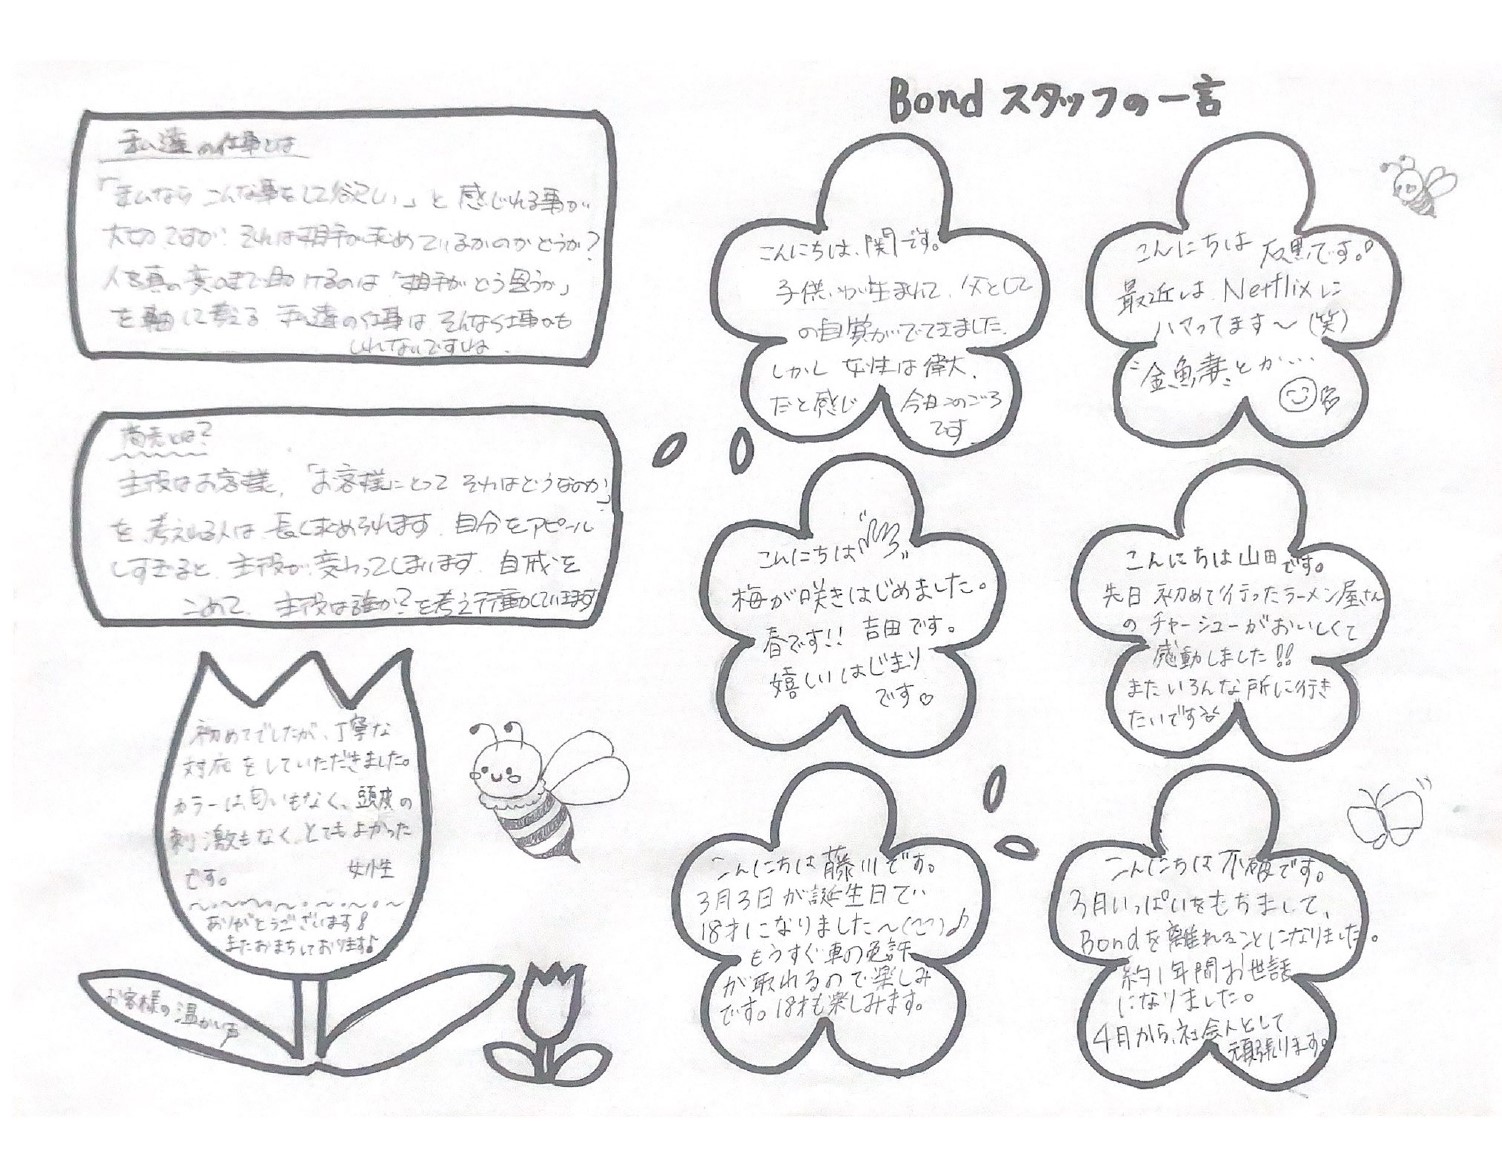 私達の仕事とは
「私なら こんな事をして欲しい」と 感じれる事が
大切ですが、それは相手が求めているかのかどうか?
人を真の笑顔まで助けるのは「相手がどう思うか」
を軸に考える 私達の仕事は、そんな仕事かも
しれないですしね。
商売とは?
主役はお客様、「お客様にとって それはどうなのか」
を、考えれる人は、長く求められます。自分をアピール
しすぎると、主役が、変わってしまいます。自戒を
こめて、主役は誰か?を考え行動しています
初めてでしたが、丁寧な
対応をしていただきました。
カラーは匂いもなく、頭皮の
刺激もなく、とてもよかった
です。 女性
ありがとうございます!
またおまちしております♪
お客様の温かい声
Bond スタッフの一言
こんにちは、関です。
子供が生まれて、父として
の自覚がでてきました。
しかし 女性は偉大。
だと感じ 今日このごろ
です。
こんにちは 友黒です。
最近は Netflixに
ハマってます〜(笑)
"金魚妻"とか…
こんにちは
梅が咲きはじめました。
春です!! 吉田です。
嬉しいはじまり
です♡
こんにちは山田です。
先日 初めて行ったラーメン屋さん
の チャーシューがおいしくて
感動しました!!
またいろんな所に行き
たいです
こんにちは藤川です。
3月3日が誕生日で
18才になりました〜♪
もうすぐ車の免許
が取れるので楽しみ
です。18才も楽しみます。
こんにちは 不破です。
3月いっぱいをもちまして、
Bondを離れることになりました。
約1年間お世話
になりました。
4月から、社会人として
頑張ります。